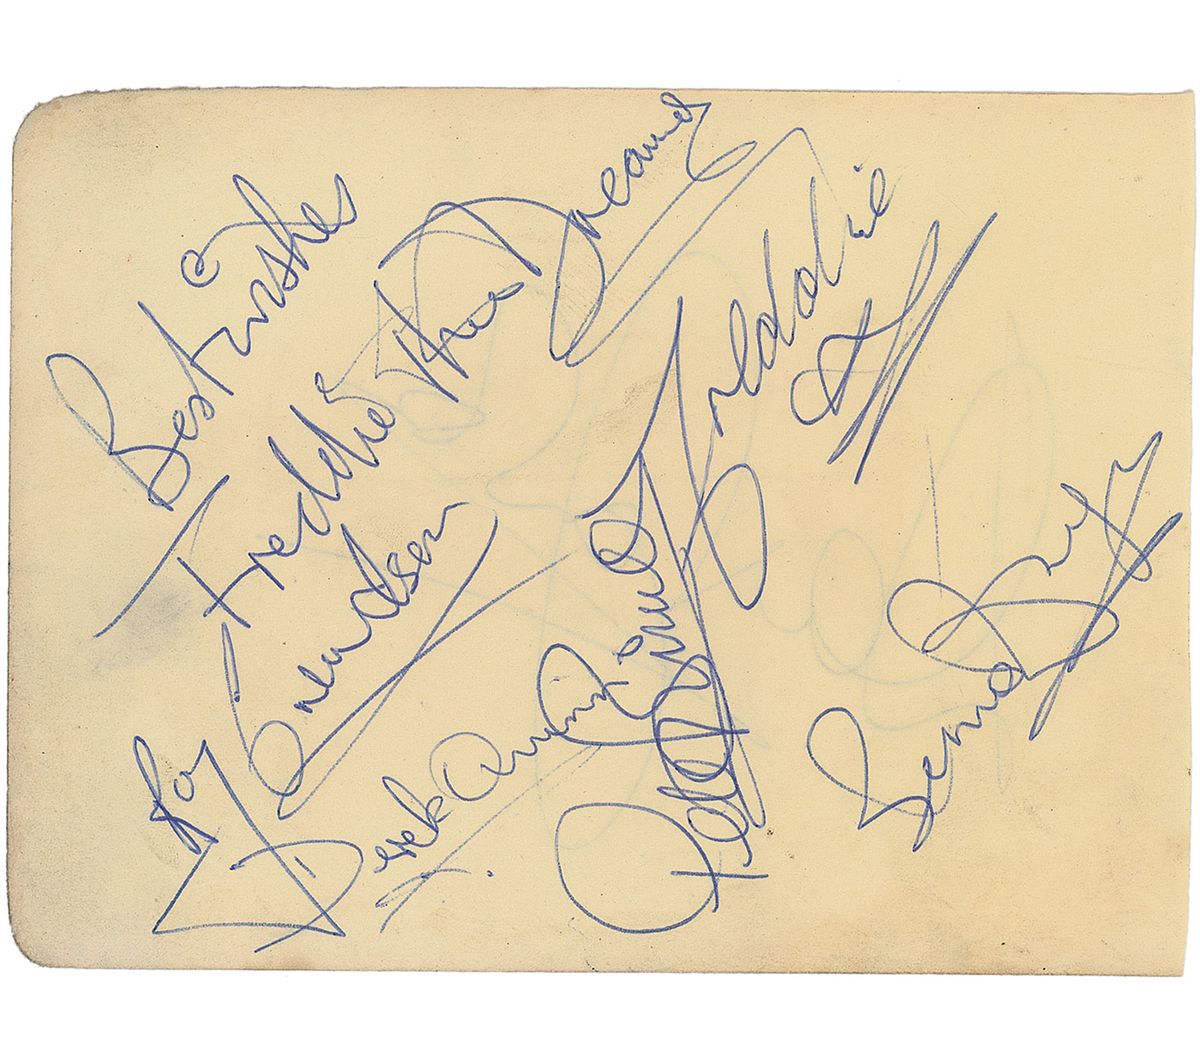 Best wishes
Freddie + the Dreamers
Freddie
Roy Crewdson
Derek Quinn
Pete Birrell
Bernie Dwyer